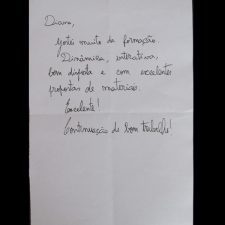 Diana,
Gostei muito da formação.
Dinâmica, interativa,
bem disposta e com excelentes
propostas de materiais.
Excelente!
Continuação de bom trabalho!